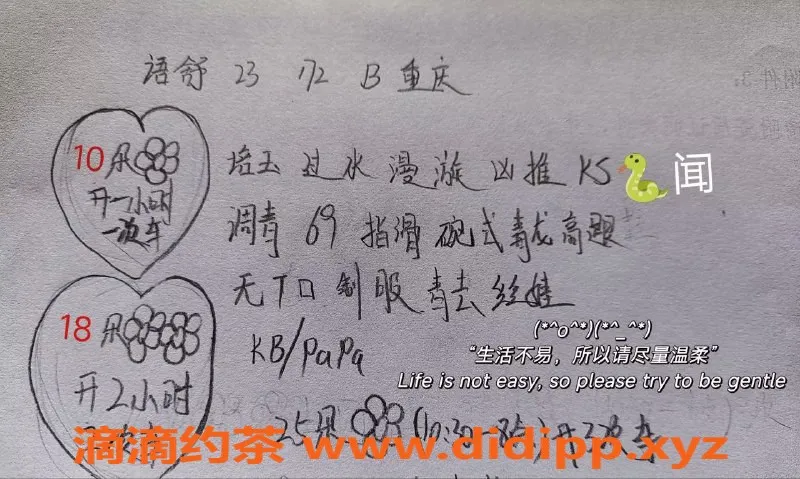 语舒 23 172 B 重庆
10朵
开一小时
一次车
培玉 过水 漫漩 凶推 KS 闻
调青 69 指滑 碗式 毒龙 高跟
无TO 制服 青去 丝娃
KB/PaPa
18朵
开2小时
(*^o^*)(*^_^*)
“生活不易，所以请尽量温柔”
Life is not easy, so please try to be gentle
25朵
开2次车
滴滴约茶 www.didipp.xyz